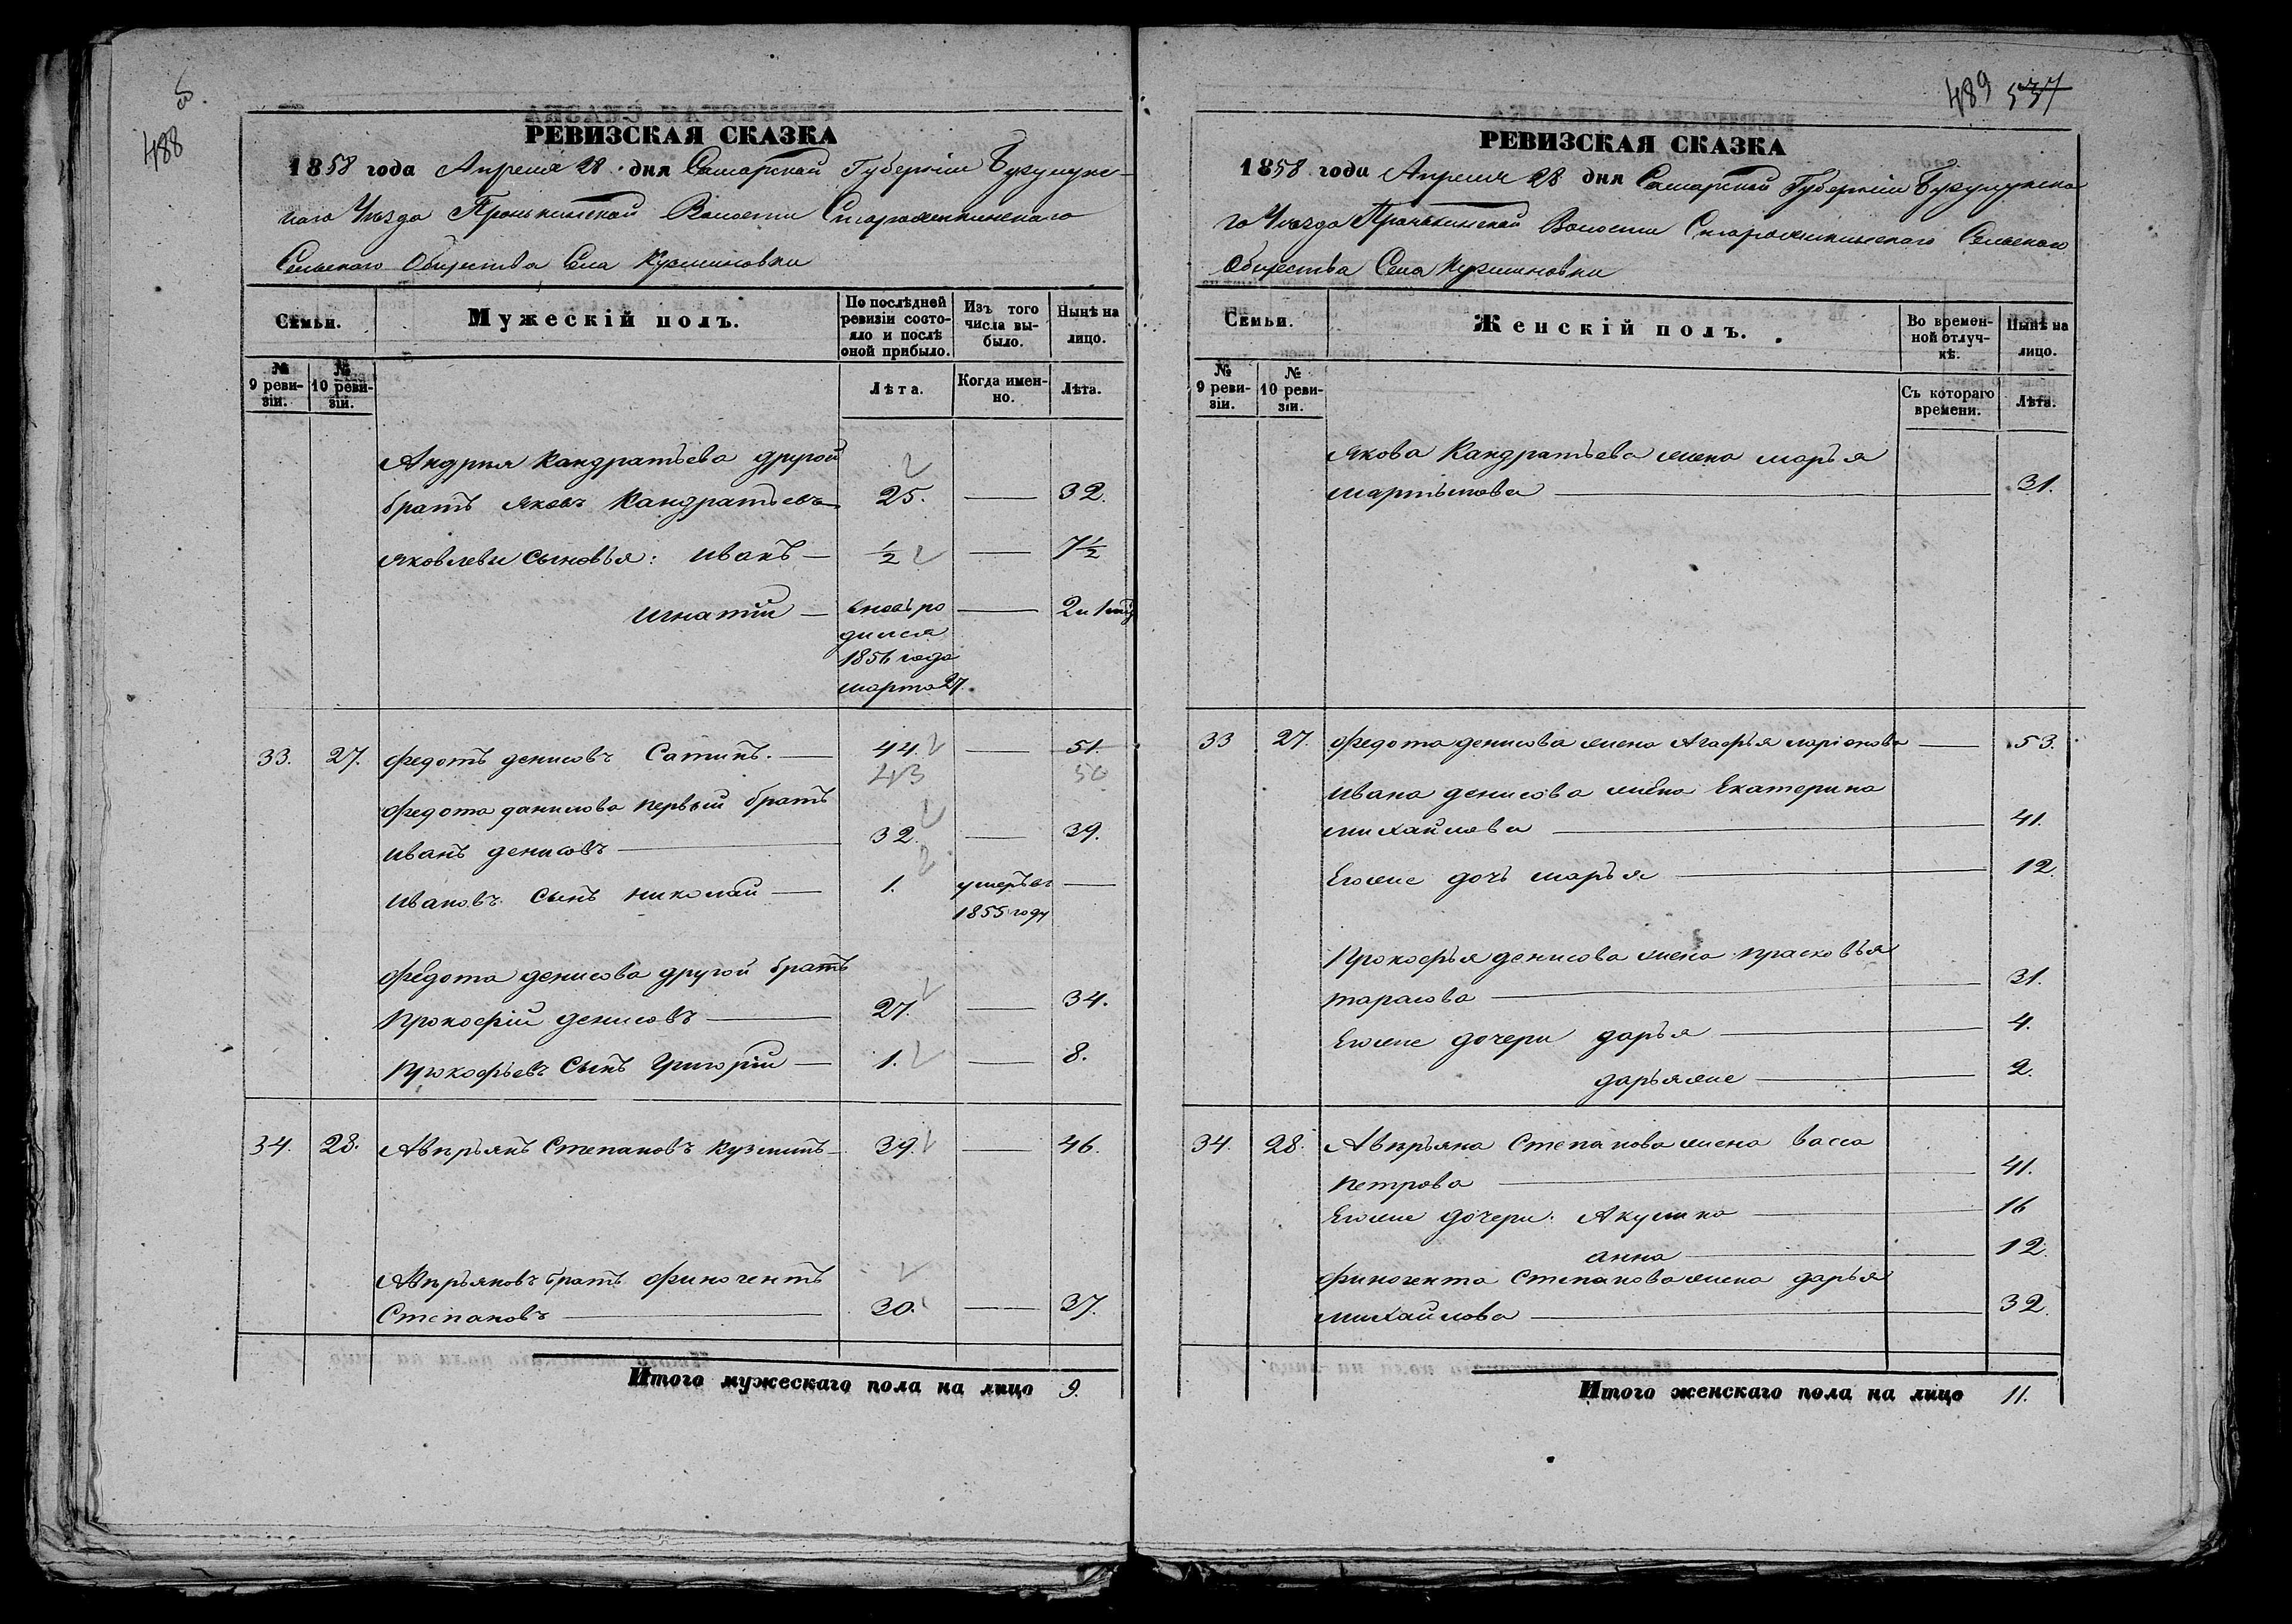 488
РЕВИЗСКАЯ СКАЗКА
1858 года Апреля 28 дня Самарской Губерніи Бузулукс-
каго Уѣзда Пронькинской Волости
Сельскаго Общества Села Кузминовки
Семьи.
Мужескій полъ.
По послѣдней ревизіи состо-
яло и послѣ оной прибыло.
Изъ того числа вы-
было.
Нынѣ на лицо.
№ 9 реви-
зіи.
№ 10 реви-
зіи.
Лѣта.
Когда имен-
но.
Лѣта.
Андрея Кандратьева другой
братъ Яковъ Кандратьевъ 25. — 32.
Яковлевы сыновья: Иванъ — ½ — 7½
Игнатій — вновь ро — 2 и 1 мѣ
дился
1856 года
марта 27.
33. 27. Федотъ денисовъ Сатинъ. — 44. — 51.
43 50
Федота данилова первый братъ
Иванъ денисовъ — 32. — 39.
Ивановъ сынъ Николай — 1. умеръ въ —
1855 году
Федота денисова другой братъ
Прокофій денисовъ — 27. — 34.
Прокофьевъ Сынъ Григорій — 1. — 8.
34. 28. Авѣрьянъ Степановъ Кузминъ — 39. — 46.
Авѣрьяновъ братъ Финогентъ
Степановъ — 30. — 37.
Итого мужескаго пола на лицо 9.
489 537
РЕВИЗСКАЯ СКАЗКА
1858 года Апреля 28 дня Самарской Губерніи Бузулукска
го Уѣзда Пронькинской Волости Сельскаго
Общества Села Кузминовки
Семьи.
Женскій полъ.
Во времен-
ной отлуч-
кѣ.
Нынѣ на лицо.
№ 9 реви-
зіи.
№ 10 реви-
зіи.
Съ котораго времени.
Лѣта.
Якова Кандратьева жена марья
мартынова — 31.
33 27. Федота денисова жена Агафья ларіонова — 53.
Ивана денисова жена Екатерина
михайлова — 41.
Егоже дочь марья — 12.
Прокофья денисова жена прасковья
тарасова — 31.
Егоже дочери дарья — 4.
дарьяже — 2.
34. 28. Авѣрьяна Степанова жена васса
петрова — 41.
Егоже дочери: Акулина — 16
анна — 12.
Финогента Степанова жена дарья
михайлова — 32.
Итого женскаго пола на лицо 11.